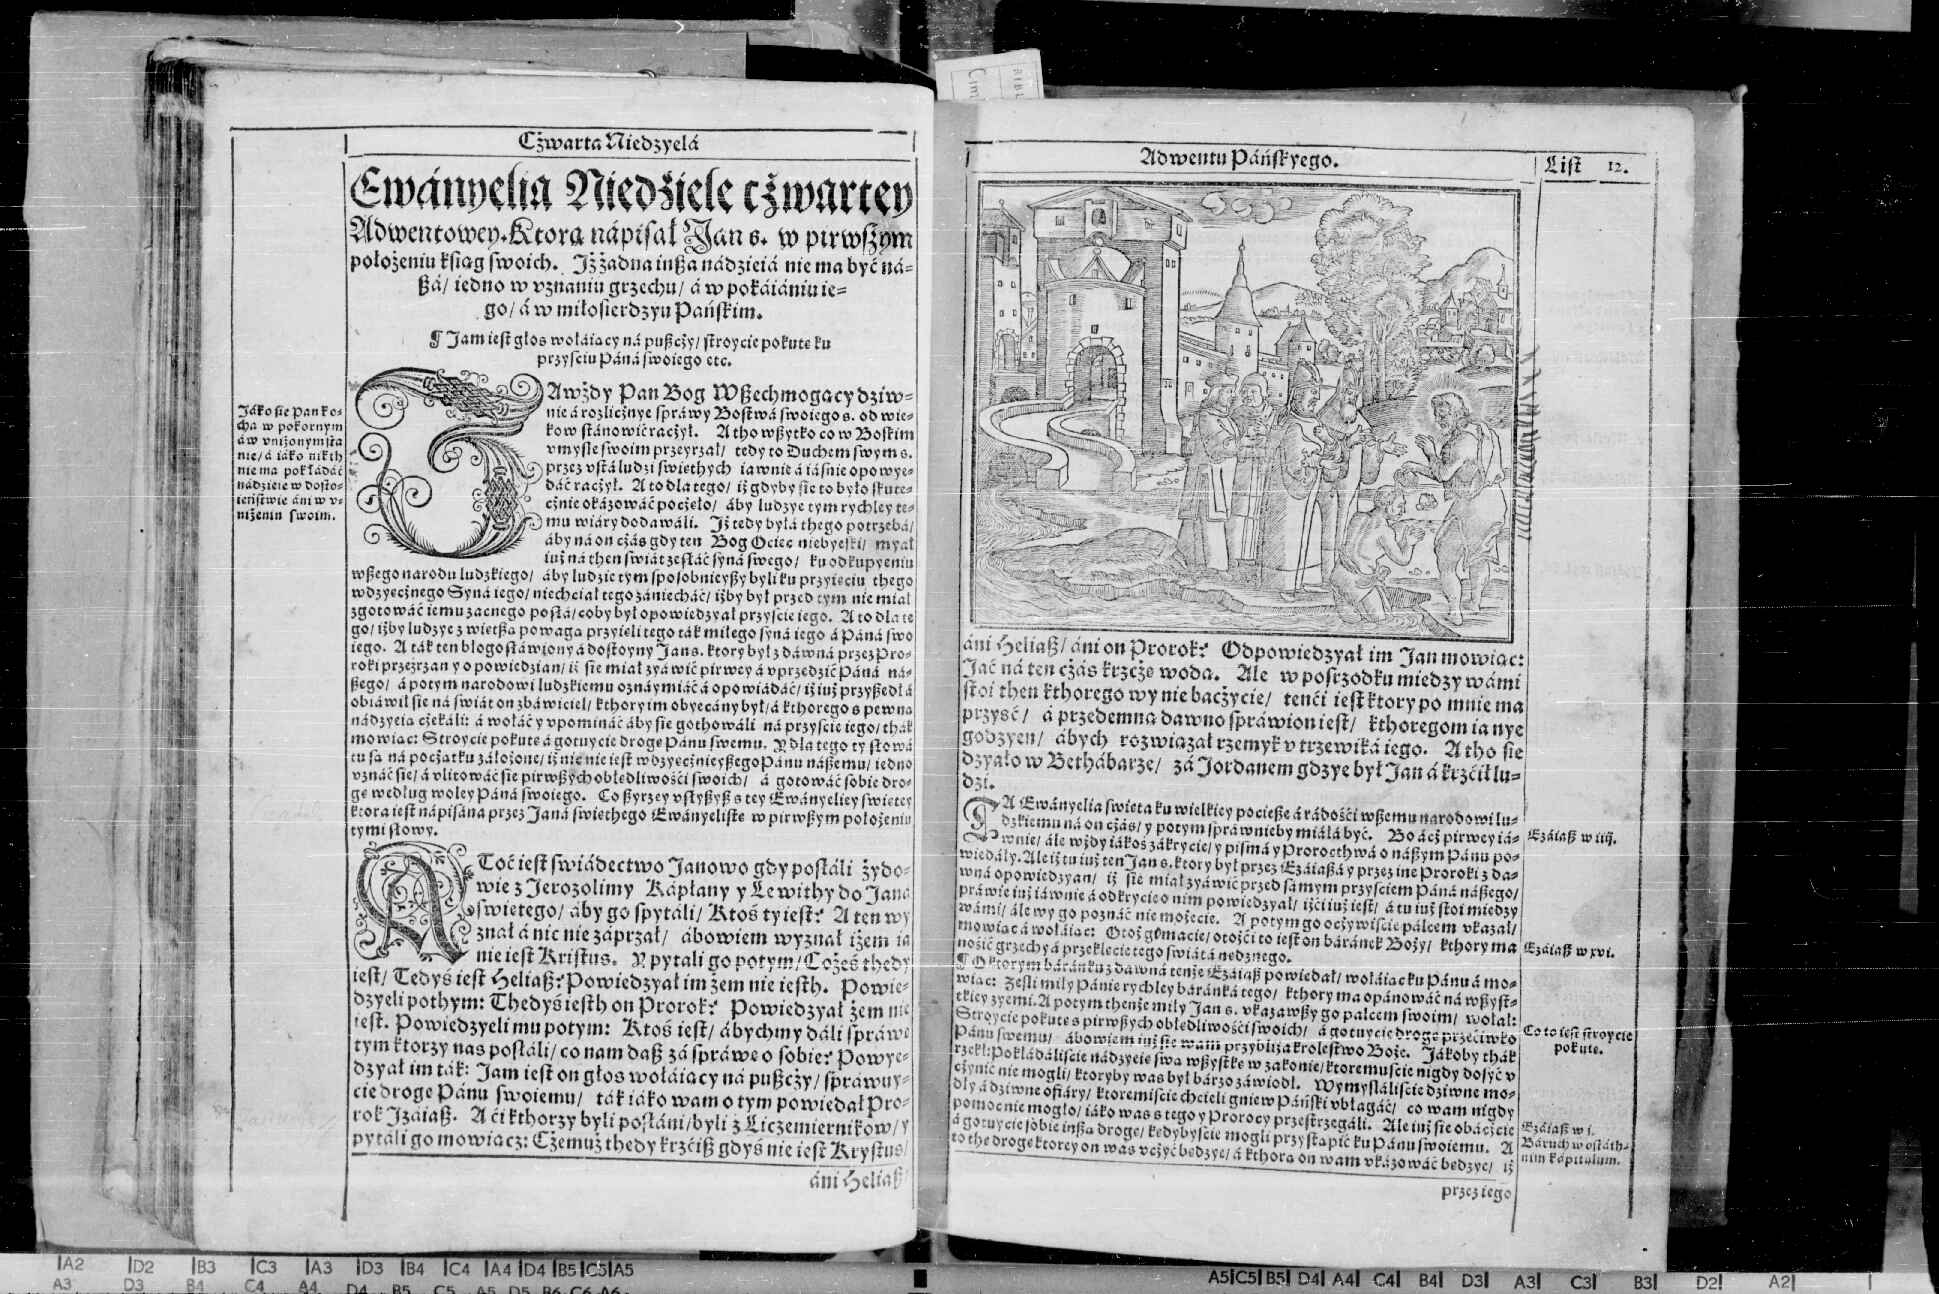 Cżwarta Niedzyelá
Ewányelia Niedżiele cżwartey
Adwentowey. Ktora nápisał Jan s. w pirwßym
położeniu ksiąg swoich. Jż żadna inßa nádzieiá nie ma być ná-
ßá/ iedno w vznaniu grzechu/ á w pokáiániu ie-
go/ á w miłosierdzyu Páńskim.
¶ Jam iest głos woláiący ná pußcży/ stroycie pokutę ku
przysciu Páná swoiego etc.
Jáko się Pan ko-
cha w pokornym
á w vniżonym sta
nie/ á iáko nikth
nie ma pokłádáć
nádzieie w dosto-
ieństwie áni w v-
niżeniu swoim.
ZAwżdy Pan Bog Wßechmogący dziw-
nie á rozlicżnye spráwy Bostwá swoiego s. od wie-
kow stánowić racżył. A tho wßytko co w Boskim
vmysle swoim przeyrzał/ tedy to Duchem swym s.
przez vstá ludzi swiethych iáwnie á iásnie opowye-
dáć racżył. A to dla tego/ iż gdyby się to było skute-
cżnie okázowáć pocżęło/ áby ludzye tym rychley te-
mu wiáry dodawáli. Jż tedy byłá thego potrzebá/
áby ná on cżás gdy ten Bog Ociec niebyeski/ myał
iuż ná then swiát zesłáć syná swego/ ku odkupyeniu
wßego narodu ludzkiego/ áby ludzie tym sposobnieyßy byli ku przyięciu thego
wdzyęcżnego Syná iego/ niechciał tego zániecháć/ iżby był przed tym nie miał
zgotowáć iemu zacnego posłá/ coby był opowiedzyał przyscie iego. A to dla te
go/ iżby ludzye z więtßą powagą przyięli tego ták miłego syná iego á Páná swo
iego. A ták ten błogosłáwiony á dostoyny Jan s. ktory był z dawná przez Pro-
roki przeżrzan y opowiedzian/ iż się miał zyáwić pirwey á vprzedzić Páná ná-
ßego/ á potym narodowi ludzkiemu oznáymiáć á opowiádáć/ iż iuż przyßedł á
obiáwił się ná swiát on zbáwiciel/ kthory im obyecány był/ á kthorego s pewną
nádzyeią cżekáli: á wołáć y vpomináć áby się gothowáli ná przyscie iego/ thák
mowiąc: Stroycie pokutę á gotuycie drogę Pánu swemu. Y dla tego ty słowá
tu są ná pocżątku záłożone/ iż nie nie iest wdzyęcżnieyßego Pánu náßemu/ iedno
vznáć się/ á vlitowáć się pirwßych obłędliwości swoich/ á gotowáć sobie dro-
gę według woley Páná swoiego. Co ßyrzey vsłyßyß s tey Ewányeliey swiętey
ktora iest nápisána przez Janá swiethego Ewányelistę w pirwßym położeniu
tymi słowy.
A Toć iest swiádectwo Janowo gdy posłáli żydo-
wie z Jerozolimy Kápłany y Lewithy do Janá
swiętego/ áby go spytáli/ Ktoś ty iest? A ten wy
znał á nic nie záprzał/ ábowiem wyznał iżem ia
nie iest Kristus. Y pytáli go potym/ Cożeś thedy
iest/ Tedyś iest Heliaß? Powiedzyał im żem nie iesth. Powie-
dzyeli pothym: Thedyś iesth on Prorok? Powiedzyał żem nie
iest. Powiedzyeli mu potym: Ktoś iest/ ábychmy dáli spráwę
tym ktorzy nas posłáli/ co nam daß zá spráwę o sobie? Powye-
dzyał im ták: Jam iest on głos woláiący ná pußcży/ spráwuy-
cie drogę Pánu swoiemu/ ták iáko wam o tym powiedał Pro-
rok Jzáiaß. A ci kthorzy byli posłáni/ byli z Licżemiernikow/ y
pytáli go mowiącz: Cżemuż thedy krzciß gdyś nie iest Krystus/
áni Heliaß/
Adwentu Páńskyego.
List 12.
áni Heliaß/ áni on Prorok? Odpowiedzyał im Jan mowiąc:
Jać ná ten cżás krzcżę wodą. Ale w posrzodku miedzy wámi
stoi then kthorego wy nie bacżycie/ tenći iest ktory po mnie ma
przyść/ á przedemną dawno spráwion iest/ kthoregom ia nye
godzyen/ ábych rozwiązał rzemyk v trzewiká iego. A tho się
dzyało w Bethábarze/ zá Jordanem gdzye był Jan á krzćił lu-
dzi.
TA Ewányelia swięta ku wielkiey pocieße á rádości wßemu narodowi lu-
dzkiemu ná on cżás/ y potym spráwnieby miáłá być. Bo ácż pirwey iá-
wnie/ ále wżdy iákoś zákrycie/ y pismá y Proroctwá o náßym Pánu po-
wiedáły. Ale iż tu iuż ten Jan s. ktory był przez Ezáiaßá y przez ine Proroki z da-
wná opowiedzyan/ iż się miał zyáwić przed sámym przysciem Páná náßego/
práwie iuż iáwnie á odkrycie o nim powiedzyał/ iżći iuż iest/ á tu iuż stoi miedzy
wámi/ ále wy go poznáć nie możecie. A potym go ocżywiscie pálcem vkazał/
mowiąc á wołáiąc: Otoż go macie/ otożći to iest on báránek Boży/ kthory ma
nośić grzechy á przeklęcie tego swiátá nędznego.
¶ O ktorym báránku z dawná tenże Ezáiaß powiedał/ wołáiąc ku Pánu á mo-
wiąc: Zesli miły Pánie rychley báránká tego/ kthory ma opánowáć ná wßyst-
tkiey zyemi. A potym thenże miły Jan s. vkazawßy go palcem swoim/ wołał:
Stroycie pokutę s pirwßych obłędliwości swoich/ á gotuycie drogę przećiwko
Pánu swemu/ ábowiem iuż się wam przybliża krolestwo Boże. Jákoby thák
rzekł: Pokłádáliście nádzyeię swą wßystkę w zakonie/ ktoremuście nigdy dosyć v
cżynić nie mogli/ ktoryby was był bárzo záwiodł. Wymysláliście dziwne mo-
dły á dziwne ofiáry/ ktoremiście chcieli gniew Páński vbłagáć/ co wam nigdy
pomocnie mogło/ iáko was s tego y Prorocy przestrzegáli. Ale iuż się obacżcie
á gotuycie sobie inßą drogę/ kedybyście mogli przystąpić ku Pánu swoiemu. A
to the drogę ktorey on was vcżyć będzye/ á kthorą on wam vkázowáć będzye/ iż
przez iego
Ezáiaß w iiij.
Ezáiaß w xvi.
Co to iest stroycie
pokutę.
Ezáiaß w i.
Báruch w ostáth-
nim kápitulum.
A2 D2 B3 C3 A3 D3 B4 C4 A4 D4 B5 C5 A5
A3 D3 B4 C4 A4 D4 B5 C5 A5 D5 B6 C6 A6
A5 C5 B5 D4 A4 C4 B4 D3 A3 C3 B3 D2 A2